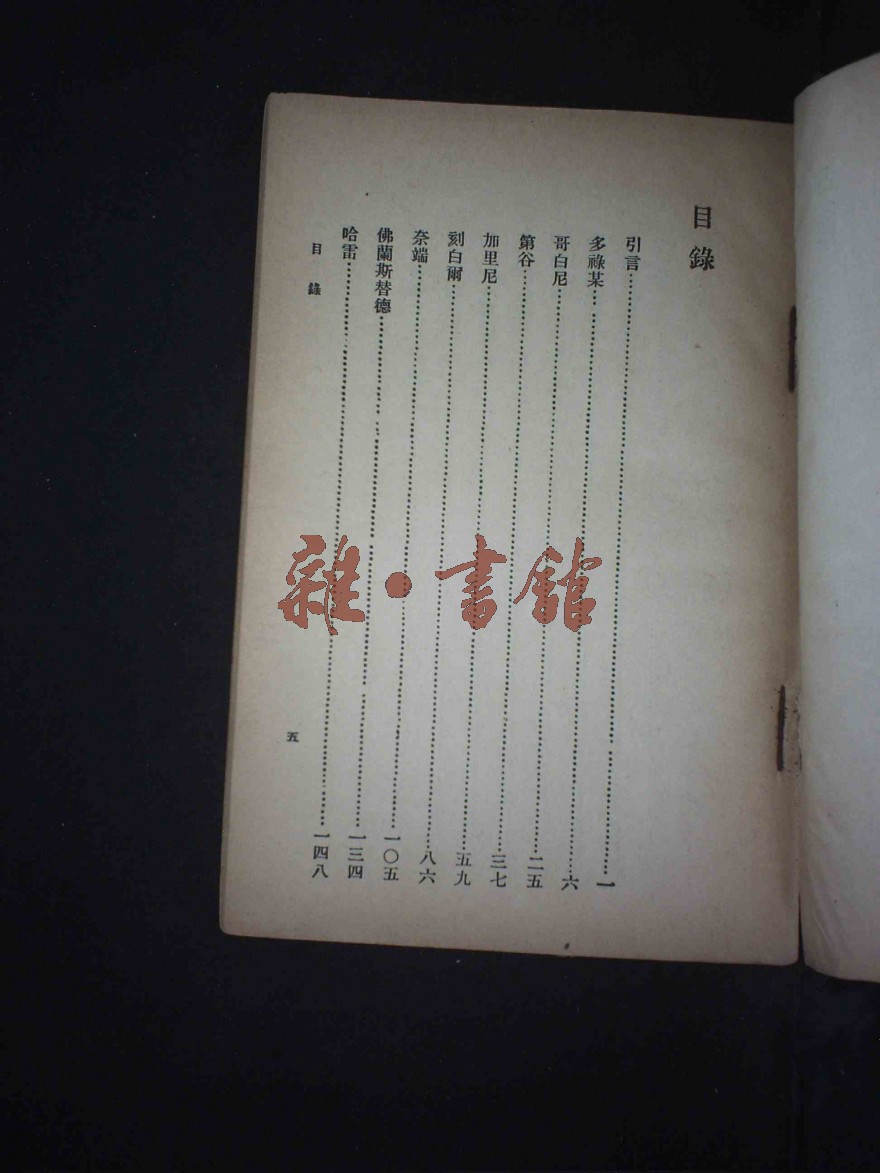 目錄
引言……一
多祿某……六
哥白尼……二五
第谷……三七
加里尼……五九
刻白爾……八六
奈端……一〇五
佛蘭斯替德……一三四
哈雷……一四八
目錄
五
雜·書館